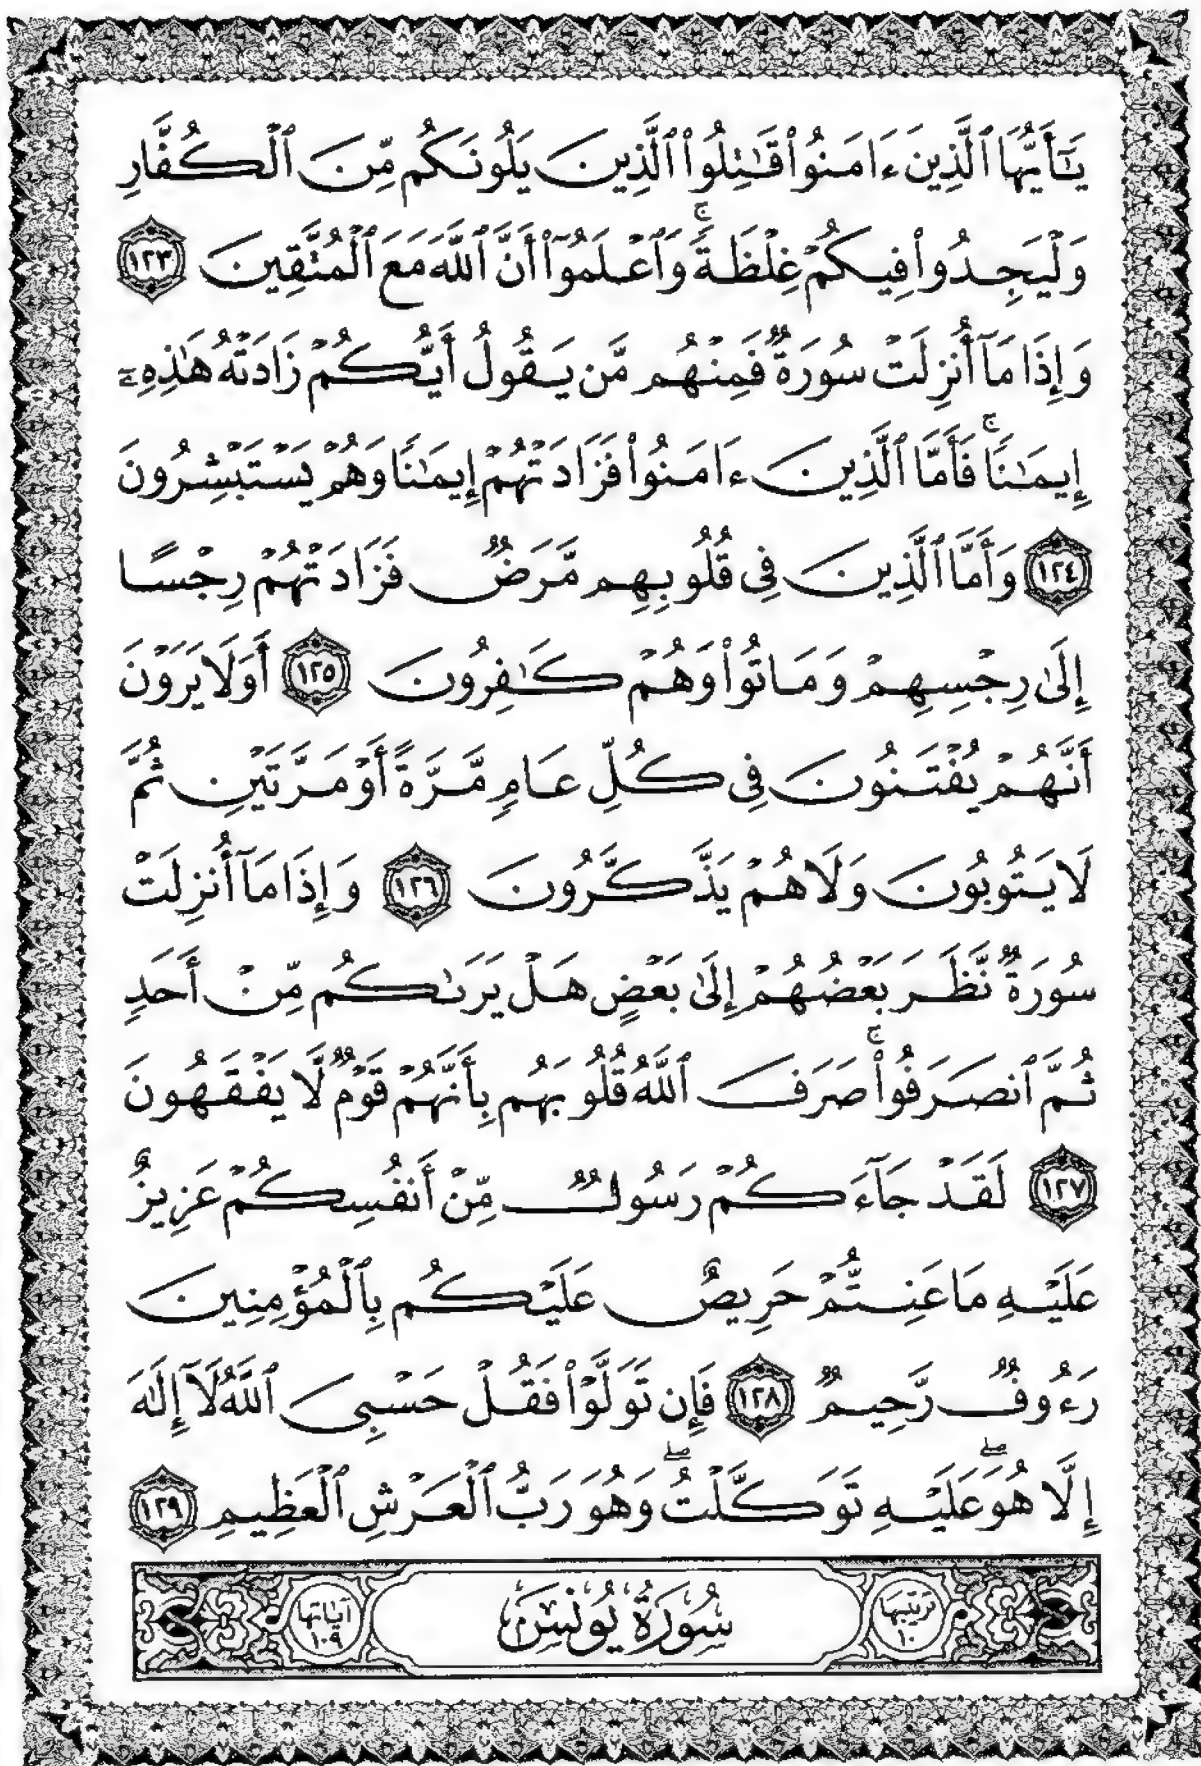 يَٰٓأَيُّهَا ٱلَّذِينَ ءَامَنُوا۟ قَٰتِلُوا۟ ٱلَّذِينَ يَلُونَكُم مِّنَ ٱلْكُفَّارِ
وَلْيَجِدُوا۟ فِيكُمْ غِلْظَةً ۚ وَٱعْلَمُوٓا۟ أَنَّ ٱللَّهَ مَعَ ٱلْمُتَّقِينَ ١٢٣
وَإِذَا مَآ أُنزِلَتْ سُورَةٌ فَمِنْهُم مَّن يَقُولُ أَيُّكُمْ زَادَتْهُ هَٰذِهِۦٓ
إِيمَٰنًا ۚ فَأَمَّا ٱلَّذِينَ ءَامَنُوا۟ فَزَادَتْهُمْ إِيمَٰنًا وَهُمْ يَسْتَبْشِرُونَ
١٢٤ وَأَمَّا ٱلَّذِينَ فِى قُلُوبِهِم مَّرَضٌ فَزَادَتْهُمْ رِجْسًا
إِلَىٰ رِجْسِهِمْ وَمَاتُوا۟ وَهُمْ كَٰفِرُونَ ١٢٥ أَوَلَا يَرَوْنَ
أَنَّهُمْ يُفْتَنُونَ فِى كُلِّ عَامٍ مَّرَّةً أَوْ مَرَّتَيْنِ ثُمَّ
لَا يَتُوبُونَ وَلَا هُمْ يَذَّكَّرُونَ ١٢٦ وَإِذَا مَآ أُنزِلَتْ
سُورَةٌ نَّظَرَ بَعْضُهُمْ إِلَىٰ بَعْضٍ هَلْ يَرَىٰكُم مِّنْ أَحَدٍ
ثُمَّ ٱنصَرَفُوا۟ ۚ صَرَفَ ٱللَّهُ قُلُوبَهُم بِأَنَّهُمْ قَوْمٌ لَّا يَفْقَهُونَ
١٢٧ لَقَدْ جَآءَكُمْ رَسُولٌ مِّنْ أَنفُسِكُمْ عَزِيزٌ
عَلَيْهِ مَا عَنِتُّمْ حَرِيصٌ عَلَيْكُم بِٱلْمُؤْمِنِينَ
رَءُوفٌ رَّحِيمٌ ١٢٨ فَإِن تَوَلَّوْا۟ فَقُلْ حَسْبِىَ ٱللَّهُ لَآ إِلَٰهَ
إِلَّا هُوَ ۖ عَلَيْهِ تَوَكَّلْتُ ۖ وَهُوَ رَبُّ ٱلْعَرْشِ ٱلْعَظِيمِ ١٢٩
ترتيبها ١٠ سُورَةُ يُونُسَ آياتها ١٠٩